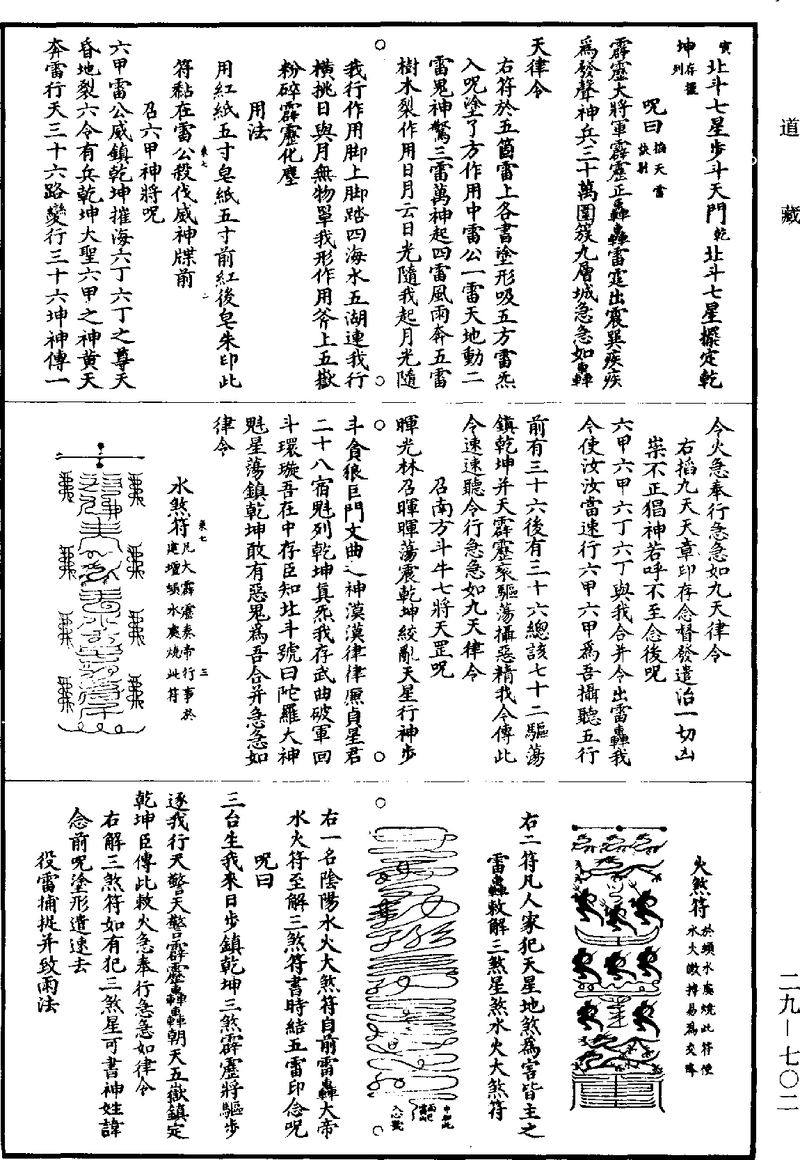 道藏
二九－七〇二
寅北斗七星步斗天門乾北斗七星握定乾
坤存握列
咒曰掐天雷訣射
霹靂大將軍霹靂正轟轟雷霆出震巽疾疾
爲發聲神兵三十萬團簇九層城急急如轟
天律令
右符於五箇雷上各書塗形吸五方雷炁
入咒塗了方作用中雷公一雷天地動二
雷鬼神驚三雷萬神起四雷風雨奔五雷
樹木裂作用日月云日光隨我起月光隨
我行作用脚上脚踏四海水五湖連我行
橫挑日與月無物單我形作用斧上五嶽
粉碎霹靂化塵
用法
用紅紙五寸皂紙五寸前紅後皂朱印此
符黏在雷公殺伐威神牒前
召六甲神將咒
六甲雷公威鎮乾坤摧海六丁六丁之尊天
昏地裂六令有兵乾坤大聖六甲之神黄天
奔雷行天三十六路變行三十六坤神傳一
令火急奉行急急如九天律令
右掐九天天章印存念督發遣治一切凶
祟不正猖神若呼不至念後咒
六甲六甲六丁六丁與我合并令出雷轟我
令使汝汝當速行六甲六甲爲吾攝聽五行
前有三十六後有三十六總該七十二驅蕩
鎮乾坤并天霹靂衮驅蕩攝惡精我令傳此
令速速聽令行急急如九天律令
召南方斗牛七將天罡咒
暉光林召暉暉蕩震乾坤絞亂天星行神步
斗貪狼巨門文曲之神漠漠律律廉貞星君
二十八宿魁列乾坤真炁我存武曲破軍回
斗環璇吾在中存臣知北斗號曰陀羅大神
魁星蕩鎮乾坤敢有惡鬼爲吾合并急急如
律令
水煞符凡大霹靂奏帝行事於建壇頭水處燒此符
火煞符於頭水處燒此符使水火激摶易爲交降
右二符凡人家犯天星地煞為害皆主之
雷轟敕解三煞星煞水火大煞符
右一名陰陽水火大煞符自前雷轟大帝
水火符至解三煞符書時結五雷印念咒
咒曰
三台生我來日步鎮乾坤三煞霹靂將驅步
逐我行天警天警吕霹靂轟轟朝天五嶽鎮定
乾坤臣傳此敕火急奉行急急如律令
右解三煞符如有犯三煞星可書神姓諱
念前咒塗形遣速去
役雷捕捉并致雨法